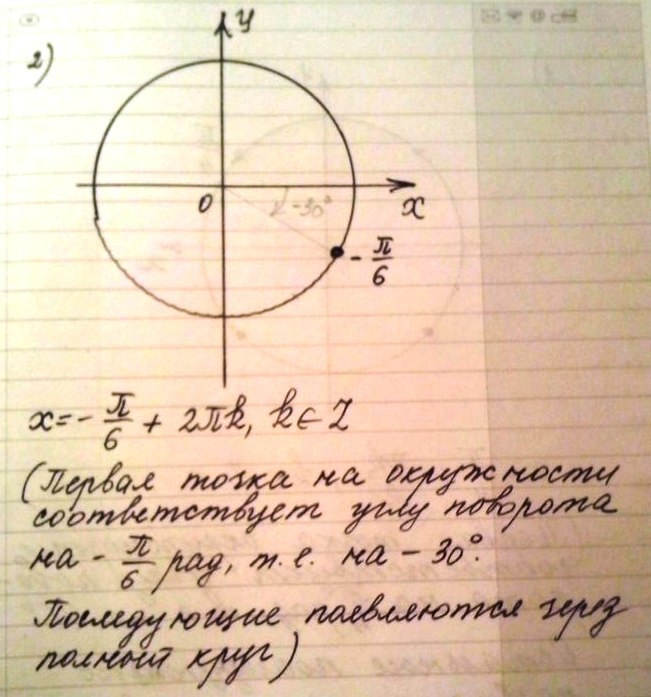 2)
y
0
-30°
x
- π/6
x = - π/6 + 2πk, k ∈ Z
(Первая точка на окружности
соответствует углу поворота
на - π/6 рад, т.е. на - 30°.
Последующие появляются через
полный круг)